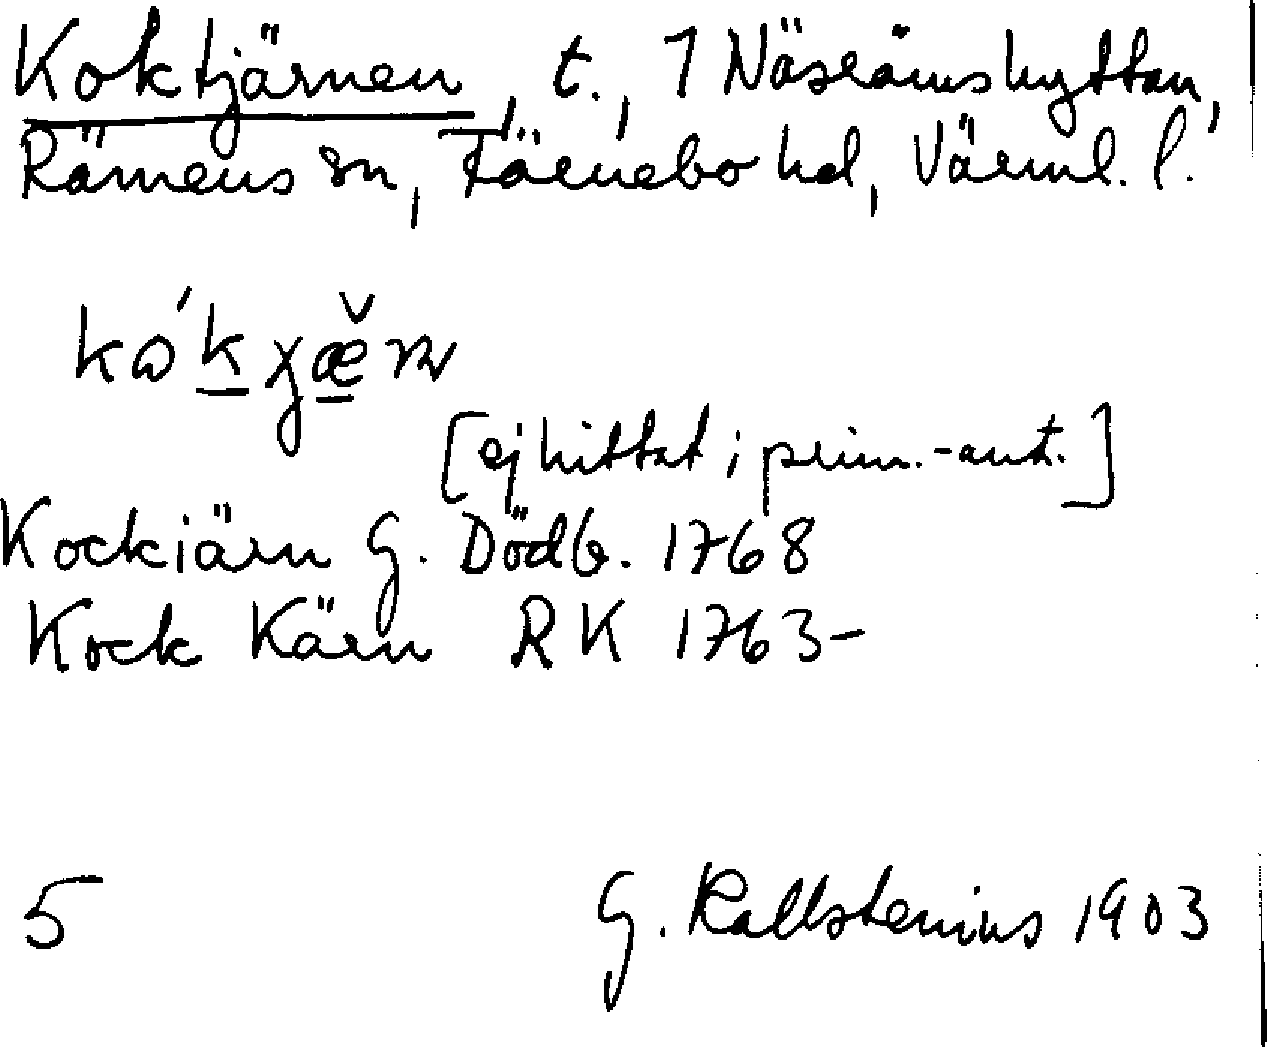 Koktjärnen, t., 1 Näsrämshyttan,
Rämens sn, Färnebo hd, Värml. l.
[ej hittat i prim.-ant.]
Kockiärn G. Dödb. 1768
Kock Kärn RK 1763-
5 G. Kallstenius 1903